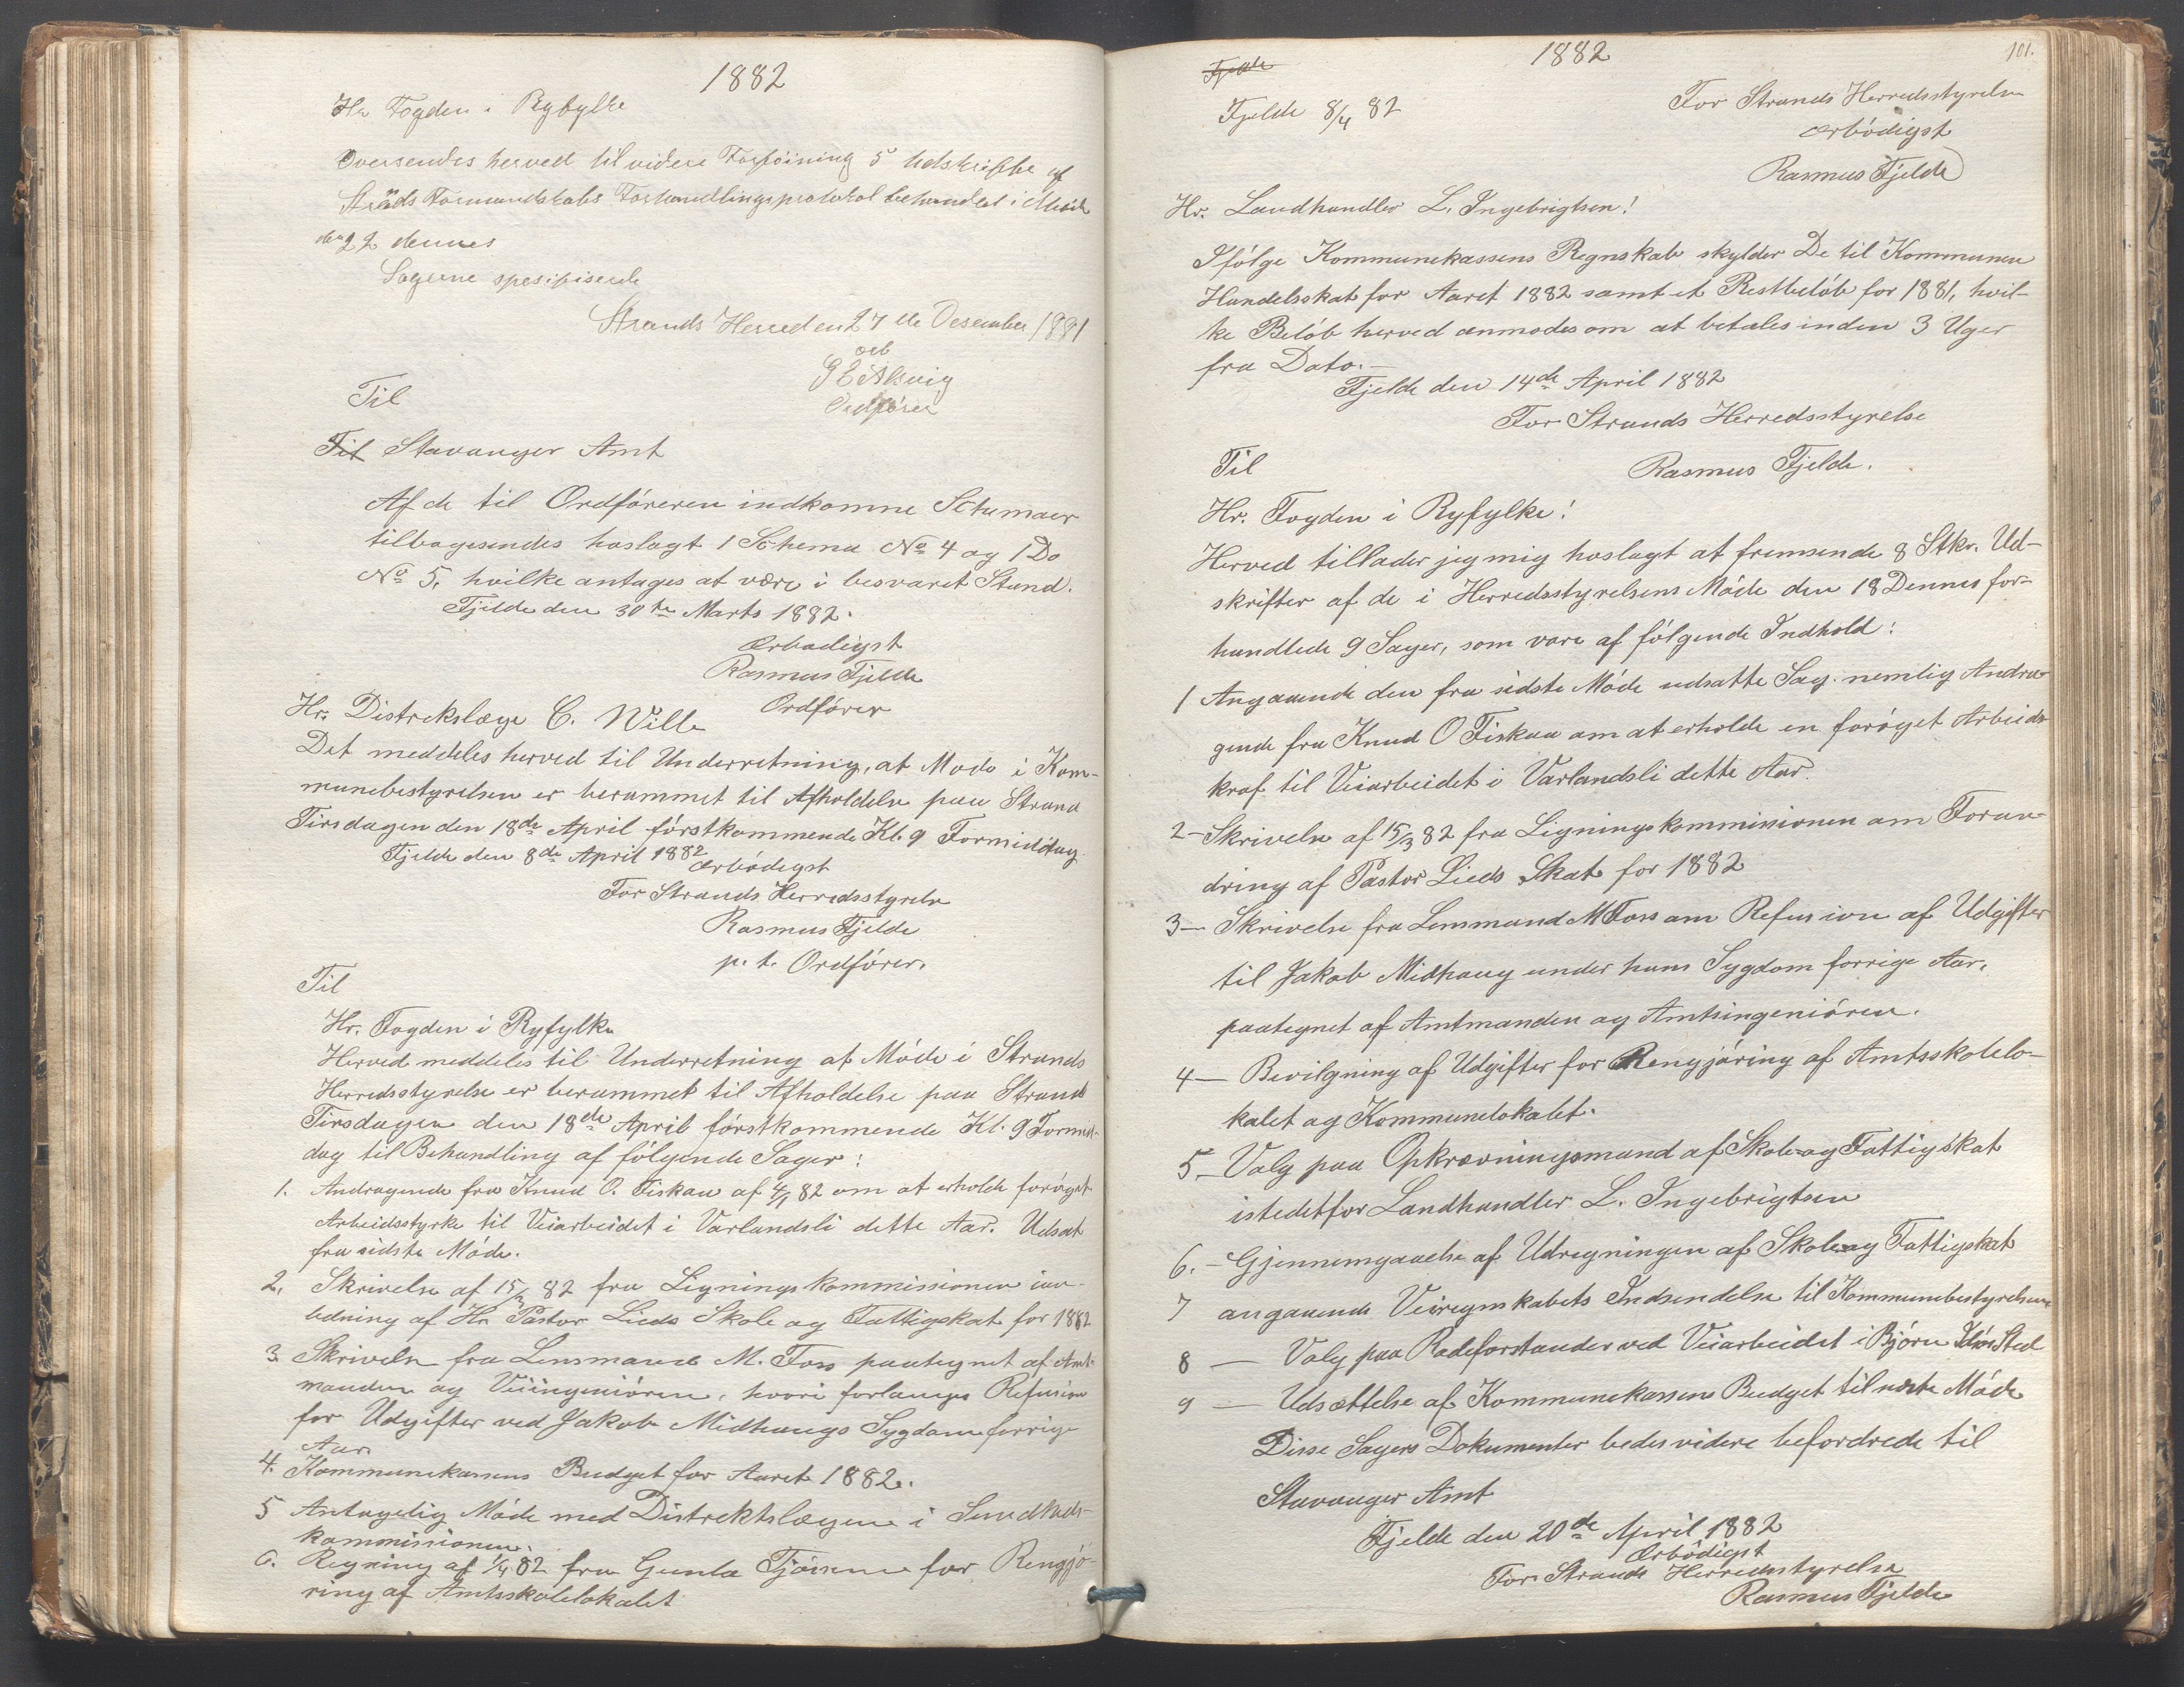 1882
Hr Fogden i Rygbylke
Oversendes herved til videre Forföining 5 Udskrifter af
Strands Formandskabs Forhandlingsprotokol behandlet i Möde
den 22 dennes
Sagerne spesifiserede
Strands Herred en 27 de Desember 1881
ærb
Ordförer
Til
Til Stavanger Amt
Af de til Ordföreren indkomne Schemaer
tilbagesendes hoslagt 1 Schema No 4 og 1 Do
No 5, hvilke antages at være i besvaret Stand.
Fjelde den 30te Marts 1882.
Ærbødigst
Rasmus Fjelde
Ordförer
Hr. Distrekslæge C. Wille
Det meddeles herved til Underretning, at Mode i Kom-
munebestyrelsen er berammet til Afholdelse paa Strand
Tirsdagen den 18de April förstkommende Kl. 9 Formiddag
Fjelde den 8de April 1882
Ærbödigst
For Strands Herredsstyrelse
Rasmus Fjelde
p. t. Ordförer.
Til
Hr. Fogden i Ryfylke
Herved meddeles til Underretning at Möde i Strands
Herredsstyrelse er berammet til Afholdelse paa Strand
Tirsdagen den 18de April förstkommende Kl. 9 Formid-
dag til Behandling af fölgende Sager:
1. Andragende fra Knud O. Fiskaa af 4/1 82 om at erholde foröget
Arbeidsstyrke til Veiarbeidet i Varlandsli dette Aar. Udsat
fra sidste Möde.
2. Skrivelse af 15/3 82 fra Ligningskommissionen
ledning af Hr Pastor Lieds Skole og Fattigskat for 1882
3. Skrivelse fra Lensmand M. Foss paategnet af Amt-
manden og Veiingeniören, hvori forlanges Refusion
for Udgifter ved Jakob Midhaugs Sygdom forrige
Aar.
4. Kommunekassens Budget for Aaret 1882.
5 Antagelig Möde med Distrektslægen i Sundheds-
kommissionen.
6. Regning af 1/4 82 fra Gunla for Rengjö-
ring af Amtsskolelokalet
101.
1882
Fjelde
Fjelde 8/4 82
For Strands Herredsstyrelse
ærbödigst
Rasmus Fjelde
Hr. Landhandler L. Ingebrigtsen!
Ifölge Kommunekassens Regnskab skylder De til Kommunen
Handelsskat for Aaret 1882 samt et Restbelöb for 1881, hvil-
ke Belöb herved anmodes om at betales inden 3 Uger
fra Dato.-
Fjelde den 14de April 1882
For Strands Herredsstyrelse
Rasmus Fjelde.
Til
Hr. Fogden i Ryfylke!
Herved tillader jeg mig hoslagt at fremsende 8 Stkr. Ud-
skrifter af de i Herredsstyrelsens Möde den 18 Dennes for-
handlede 9 Sager, som vare af fölgende Indhold:
1 Angaaende den fra sidste Möde udsatte Sag nemlig Andra-
gende fra Knud O Fiskaa om at erholde en foröget Arbeids
kraf til Veiarbeidet i Varlandsli dette Aar.
2- Skrivelse af 15/3 82 fra Ligningskommissionen om Foran-
dring af Pastor Lieds Skat for 1882
3- Skrivelse fra Lensmand M Foss om Refusion af Udgifter
til Jakob Midhaug under hans Sygdom forrige Aar,
paategnet af Amtmanden og Amtsingeniören.
4- Bevilgning af Udgifter for Rengjöring af Amtsskolelo-
kalet og Kommunelokalet.
5- Valg paa Opkrævningsmand af Skole- og Fattigskat
istedetfor Landhandler L. Ingebrigtsen
6.- Gjennemgaaelse af Udregningen af Skole- og Fattigskat
7 angaaende Veiregnskabets Indsendelse til Kommunebestyrelsen
8 - Valg paa Rodeforstander ved Veiarbeidet i Björn Sted
9 - Udsættelse af Kommunekassens Budget til næste Möde
Disse Sagers Dokumenter bedes videre befordrede til
Stavanger Amt
Fjelde den 20de April 1882
Ærbödigst
For Strands Herredsstyrelse
Rasmus Fjelde